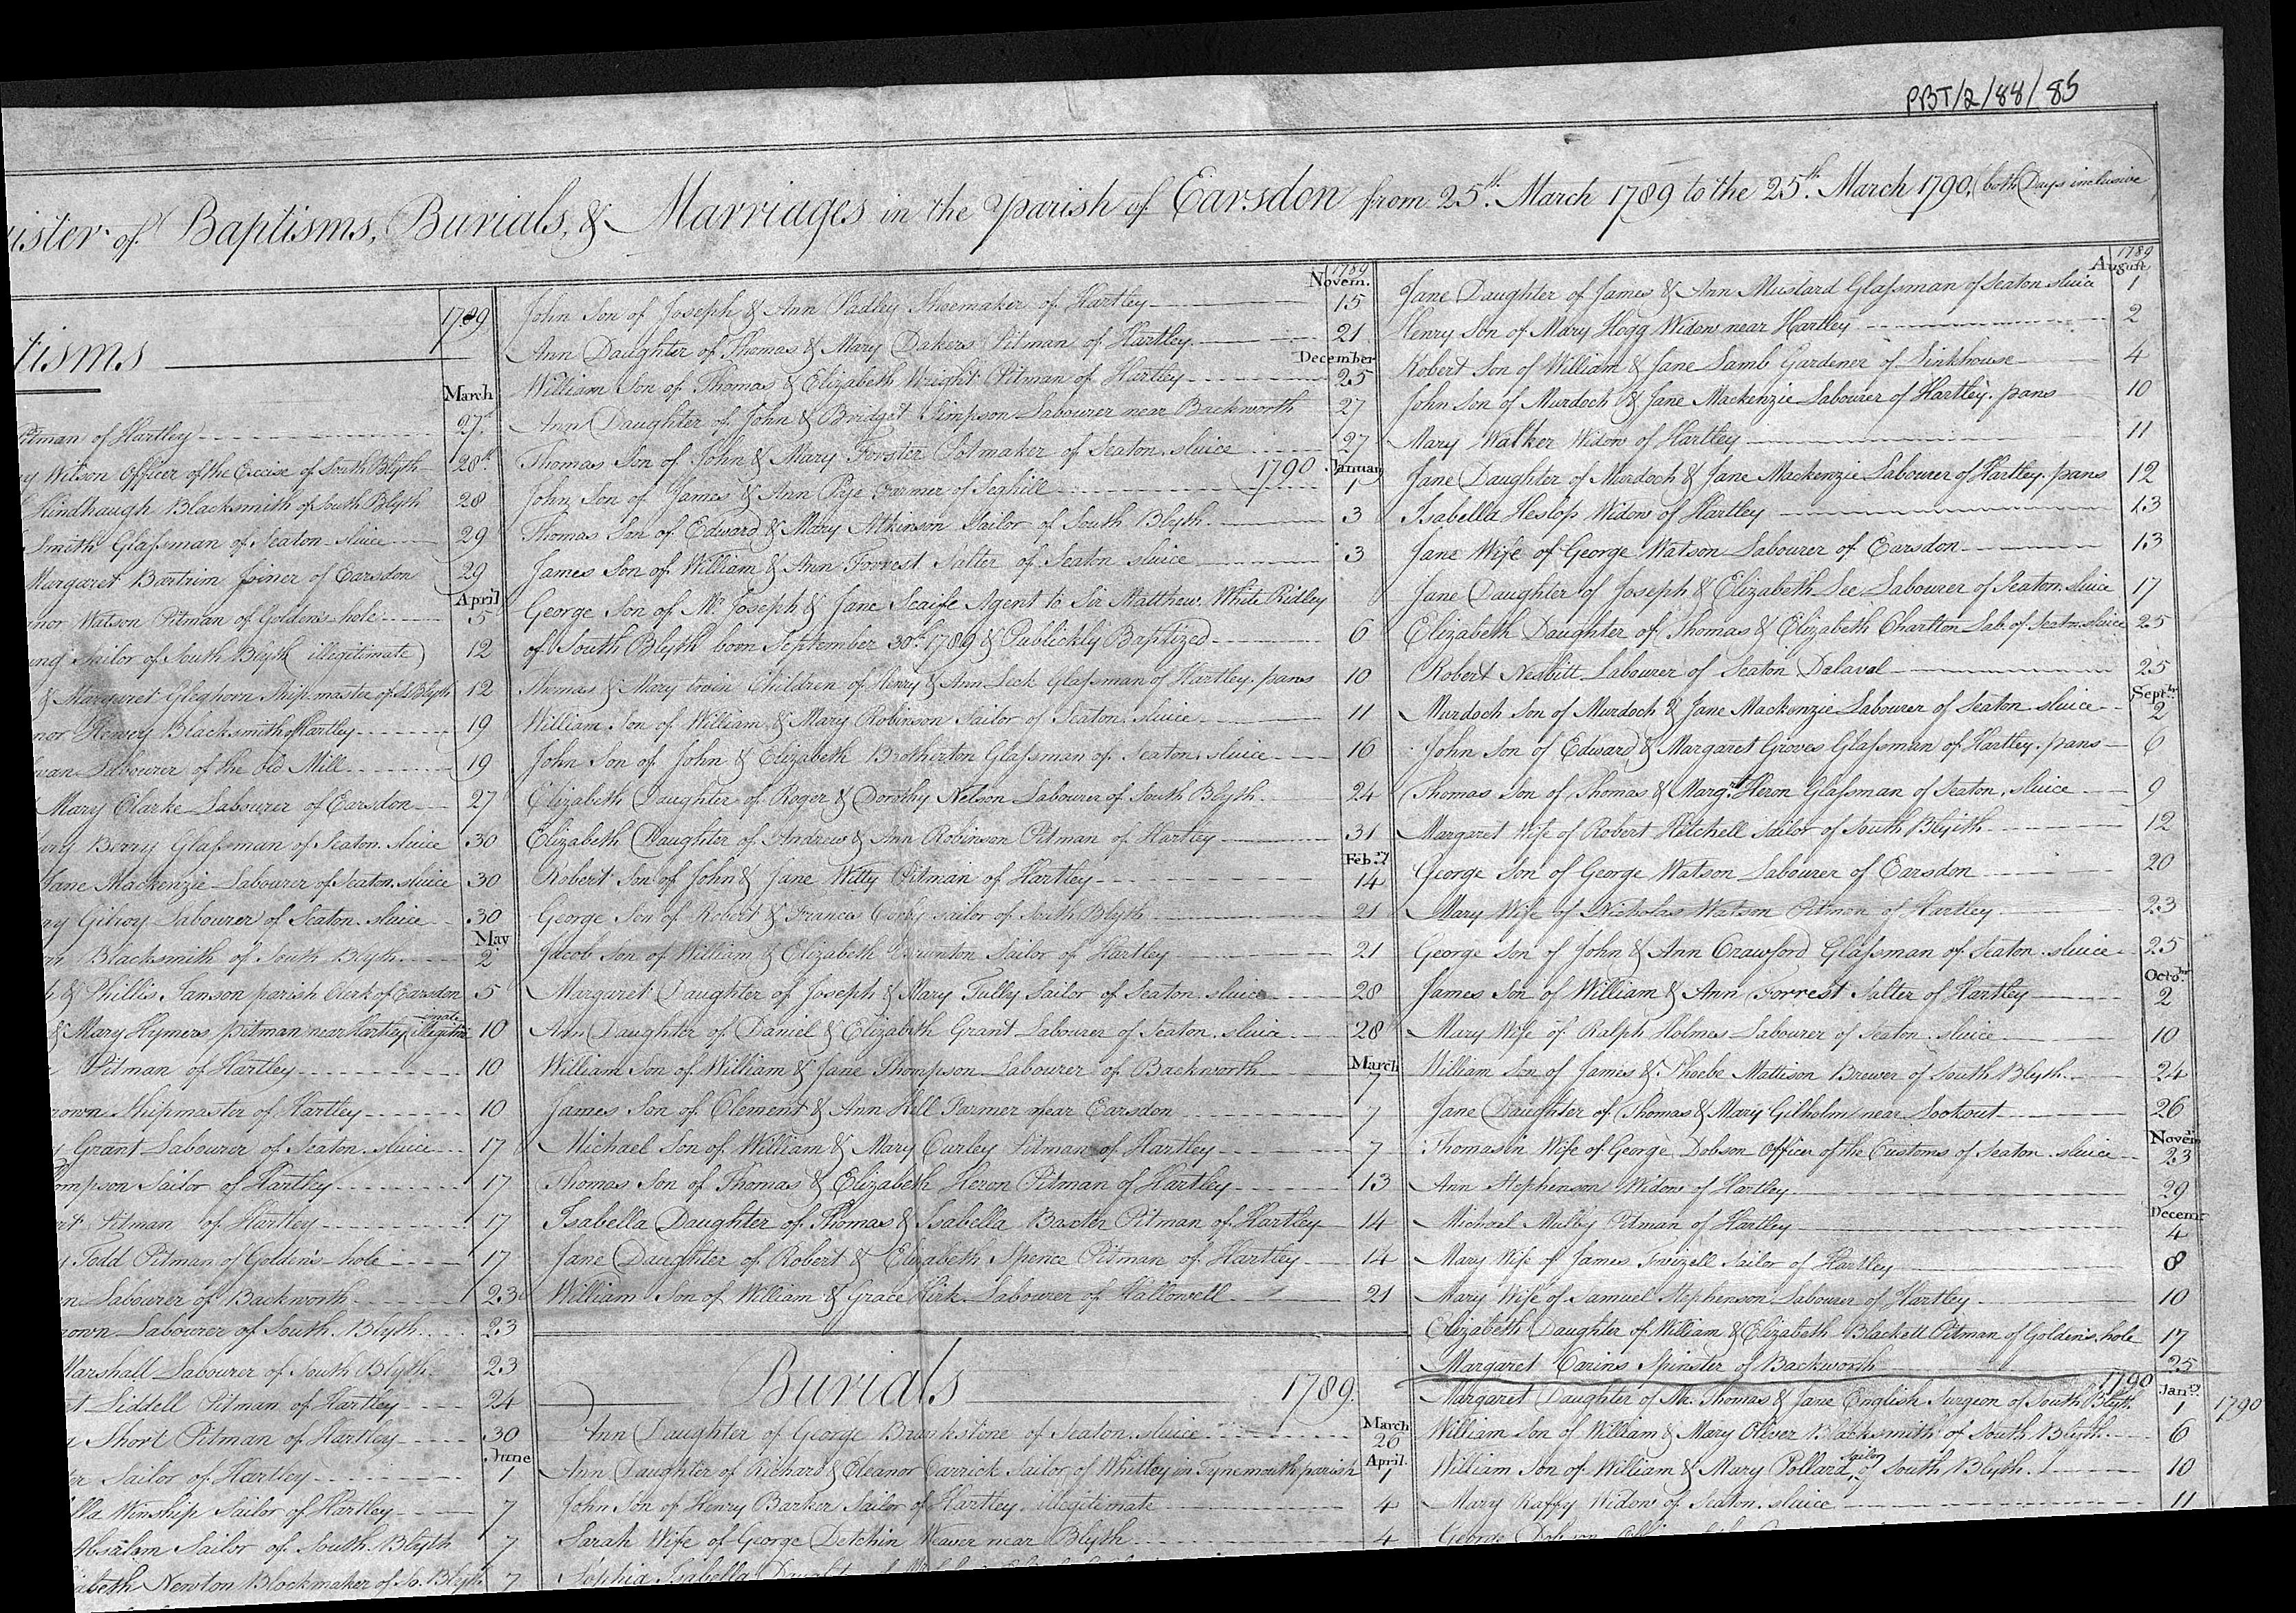 PBT/2/88/85
ister of Baptisms, Burials, & Marriages in the parish of Earsdon from 25th March 1789 to the 25th March 1790, (both Days inclusive
tisms 1789
March
Pitman of Hartley 27th
Wilson Officer of the Excise of South Blyth 28th
Hindhaugh Blacksmith of South Blyth 28
Smith Glassman of Seaton-sluice 29
Margaret Bartrim Joiner of Earsdon 29
April
nor Watson Pitman of Golden's-hole 5
ing Sailor of South Blyth (illegitimate) 12
& Margaret Gleghorn Ship-master of S. Blyth 12
nor Henery Blacksmith of Hartley 19
wan Labourer of the Old Mill 19
Mary Clarke Labourer of Earsdon 27
Berry Glassman of Seaton-sluice 30
Jane Mackenzie Labourer of Seaton-sluice 30
ry Gilroy Labourer of Seaton-sluice 30
May
Blacksmith of South Blyth 2
& Phillis Janson parish Clerk of Earsdon 5
& Mary Hymers pitman near Hartley illegitimate 10
Pitman of Hartley 10
rown Shipmaster of Hartley 10
Grant Labourer of Seaton-sluice 17
ompson Sailor of Hartley 17
Pitman of Hartley 17
Todd Pitman of Golden's-hole 17
n Labourer of Backworth 23
rown Labourer of South Blyth 23
Marshall Labourer of South Blyth 23
Liddell Pitman of Hartley 24
Short Pitman of Hartley 30
June
Sailor of Hartley 1
lla Winship Sailor of Hartley 7
Absalam Sailor of South Blyth 7
abeth Newton Blockmaker of So. Blyth 7
1789
Novem.
John Son of Joseph & Ann Padley Shoemaker of Hartley 15
Ann Daughter of Thomas & Mary Dakers Pitman of Hartley 21
December
William Son of Thomas & Elizabeth Wright Pitman of Hartley 25
Ann Daughter of John & Bridget Simpson Labourer near Backworth 27
Thomas Son of John & Mary Forster Potmaker of Seaton-sluice 27
1790 January
John Son of James & Ann Pye Farmer of Seghill 1
Thomas Son of Edward & Mary Atkinson Sailor of South Blyth 3
James Son of William & Ann Forrest Salter of Seaton sluice 3
George Son of Mr Joseph & Jane Scaife Agent to Sir Matthew White Ridley
of South Blyth born September 30th 1789 & Publickly Baptized 6
Thomas & Mary twin Children of Henry & Ann Leck Glassman of Hartley-pans 10
William Son of William & Mary Robinson Sailor of Seaton-sluice 11
John Son of John & Elizabeth Brotherton Glassman of Seaton-sluice 16
Elizabeth Daughter of Roger & Dorothy Nelson Labourer of South Blyth 24
Elizabeth Daughter of Andrew & Ann Robinson Pitman of Hartley 31
Feb.ry
Robert Son of John & Jane Witty Pitman of Hartley 14
George Son of Robert & Frances Corby Sailor of South Blyth 21
Jacob Son of William & Elizabeth Sailor of Hartley 21
Margaret Daughter of Joseph & Mary Tully Sailor of Seaton-sluice 28
Ann Daughter of Daniel & Elizabeth Grant Labourer of Seaton-sluice 28
March
William Son of William & Jane Thompson Labourer of Backworth 7
James Son of Clement & Ann Hill Farmer near Earsdon 7
Michael Son of William & Mary Curley Pitman of Hartley 7
Thomas Son of Thomas & Elizabeth Heron Pitman of Hartley 13
Isabella Daughter of Thomas & Isabella Baxter Pitman of Hartley 14
Jane Daughter of Robert & Elizabeth Spence Pitman of Hartley 14
William Son of William & Grace Kirk Labourer of Hallowell 21
Burials 1789
March
Ann Daughter of George Brunkstone of Seaton-sluice 26
April
Ann Daughter of Richard & Eleanor Carrick Sailor of Whitley in Tynemouth parish 1
John Son of Henry Barker Sailor of Hartley illegitimate 4
Sarah Wife of George Detchin Weaver near Blyth 4
Sophia Isabella
1789
August
Jane Daughter of James & Ann Mustard Glassman of Seaton sluice 1
Henry Son of Mary Hogg Widow near Hartley 2
Robert Son of William & Jane Lamb Gardener of Linkhouse 4
John Son of Murdoch & Jane Mackenzie Labourer of Hartley-pans 10
Mary Walker Widow of Hartley 11
Jane Daughter of Murdoch & Jane Mackenzie Labourer of Hartley-pans 12
Isabella Heslop Widow of Hartley 13
Jane Wife of George Watson Labourer of Earsdon 13
Jane Daughter of Joseph & Elizabeth Lee Labourer of Seaton-sluice 17
Elizabeth Daughter of Thomas & Elizabeth Charlton Lab. of Seaton-sluice 25
Robert Nesbitt Labourer of Seaton Delaval 25
Septr
Murdoch Son of Murdoch & Jane Mackenzie Labourer of Seaton-sluice 2
John Son of Edward & Margaret Groves Glassman of Hartley-pans 6
Thomas Son of Thomas & Margt Heron Glassman of Seaton-sluice 9
Margaret Wife of Robert Hetchell Sailor of South Blyith 12
George Son of George Watson Labourer of Earsdon 20
Mary Wife of Nicholas Watson Pitman of Hartley 23
George Son of John & Ann Crawford Glassman of Seaton-sluice 25
Octobr
James Son of William & Ann Forrest Salter of Hartley 2
Mary Wife of Ralph Holmes Labourer of Seaton-sluice 10
William Son of James & Phoebe Mattison Brewer of South Blyth 24
Jane Daughter of Thomas & Mary Gilholm near Lookout 26
Novem
Thomasin Wife of George Dobson Officer of the Customs of Seaton-sluice 23
Ann Stephenson Widow of Hartley 29
Decemr
Michael Mulby Pitman of Hartley 4
Mary Wife of James Twizell Sailor of Hartley 8
Mary Wife of Samuel Stephenson Labourer of Hartley 10
Elizabeth Daughter of William & Elizabeth Blackett Pitman of Golden's-hole 17
Margaret Carins Spinster of Backworth 25
1790 Jan.ry
Margaret Daughter of Mr. Thomas & Jane English Surgeon of South Blyth 1 1790
William Son of William & Mary Oliver Blacksmith of South Blyth 6
William Son of William & Mary Pollard Sailor of South Blyth 10
Mary Raffy Widow of Seaton-sluice 11
George Dobson